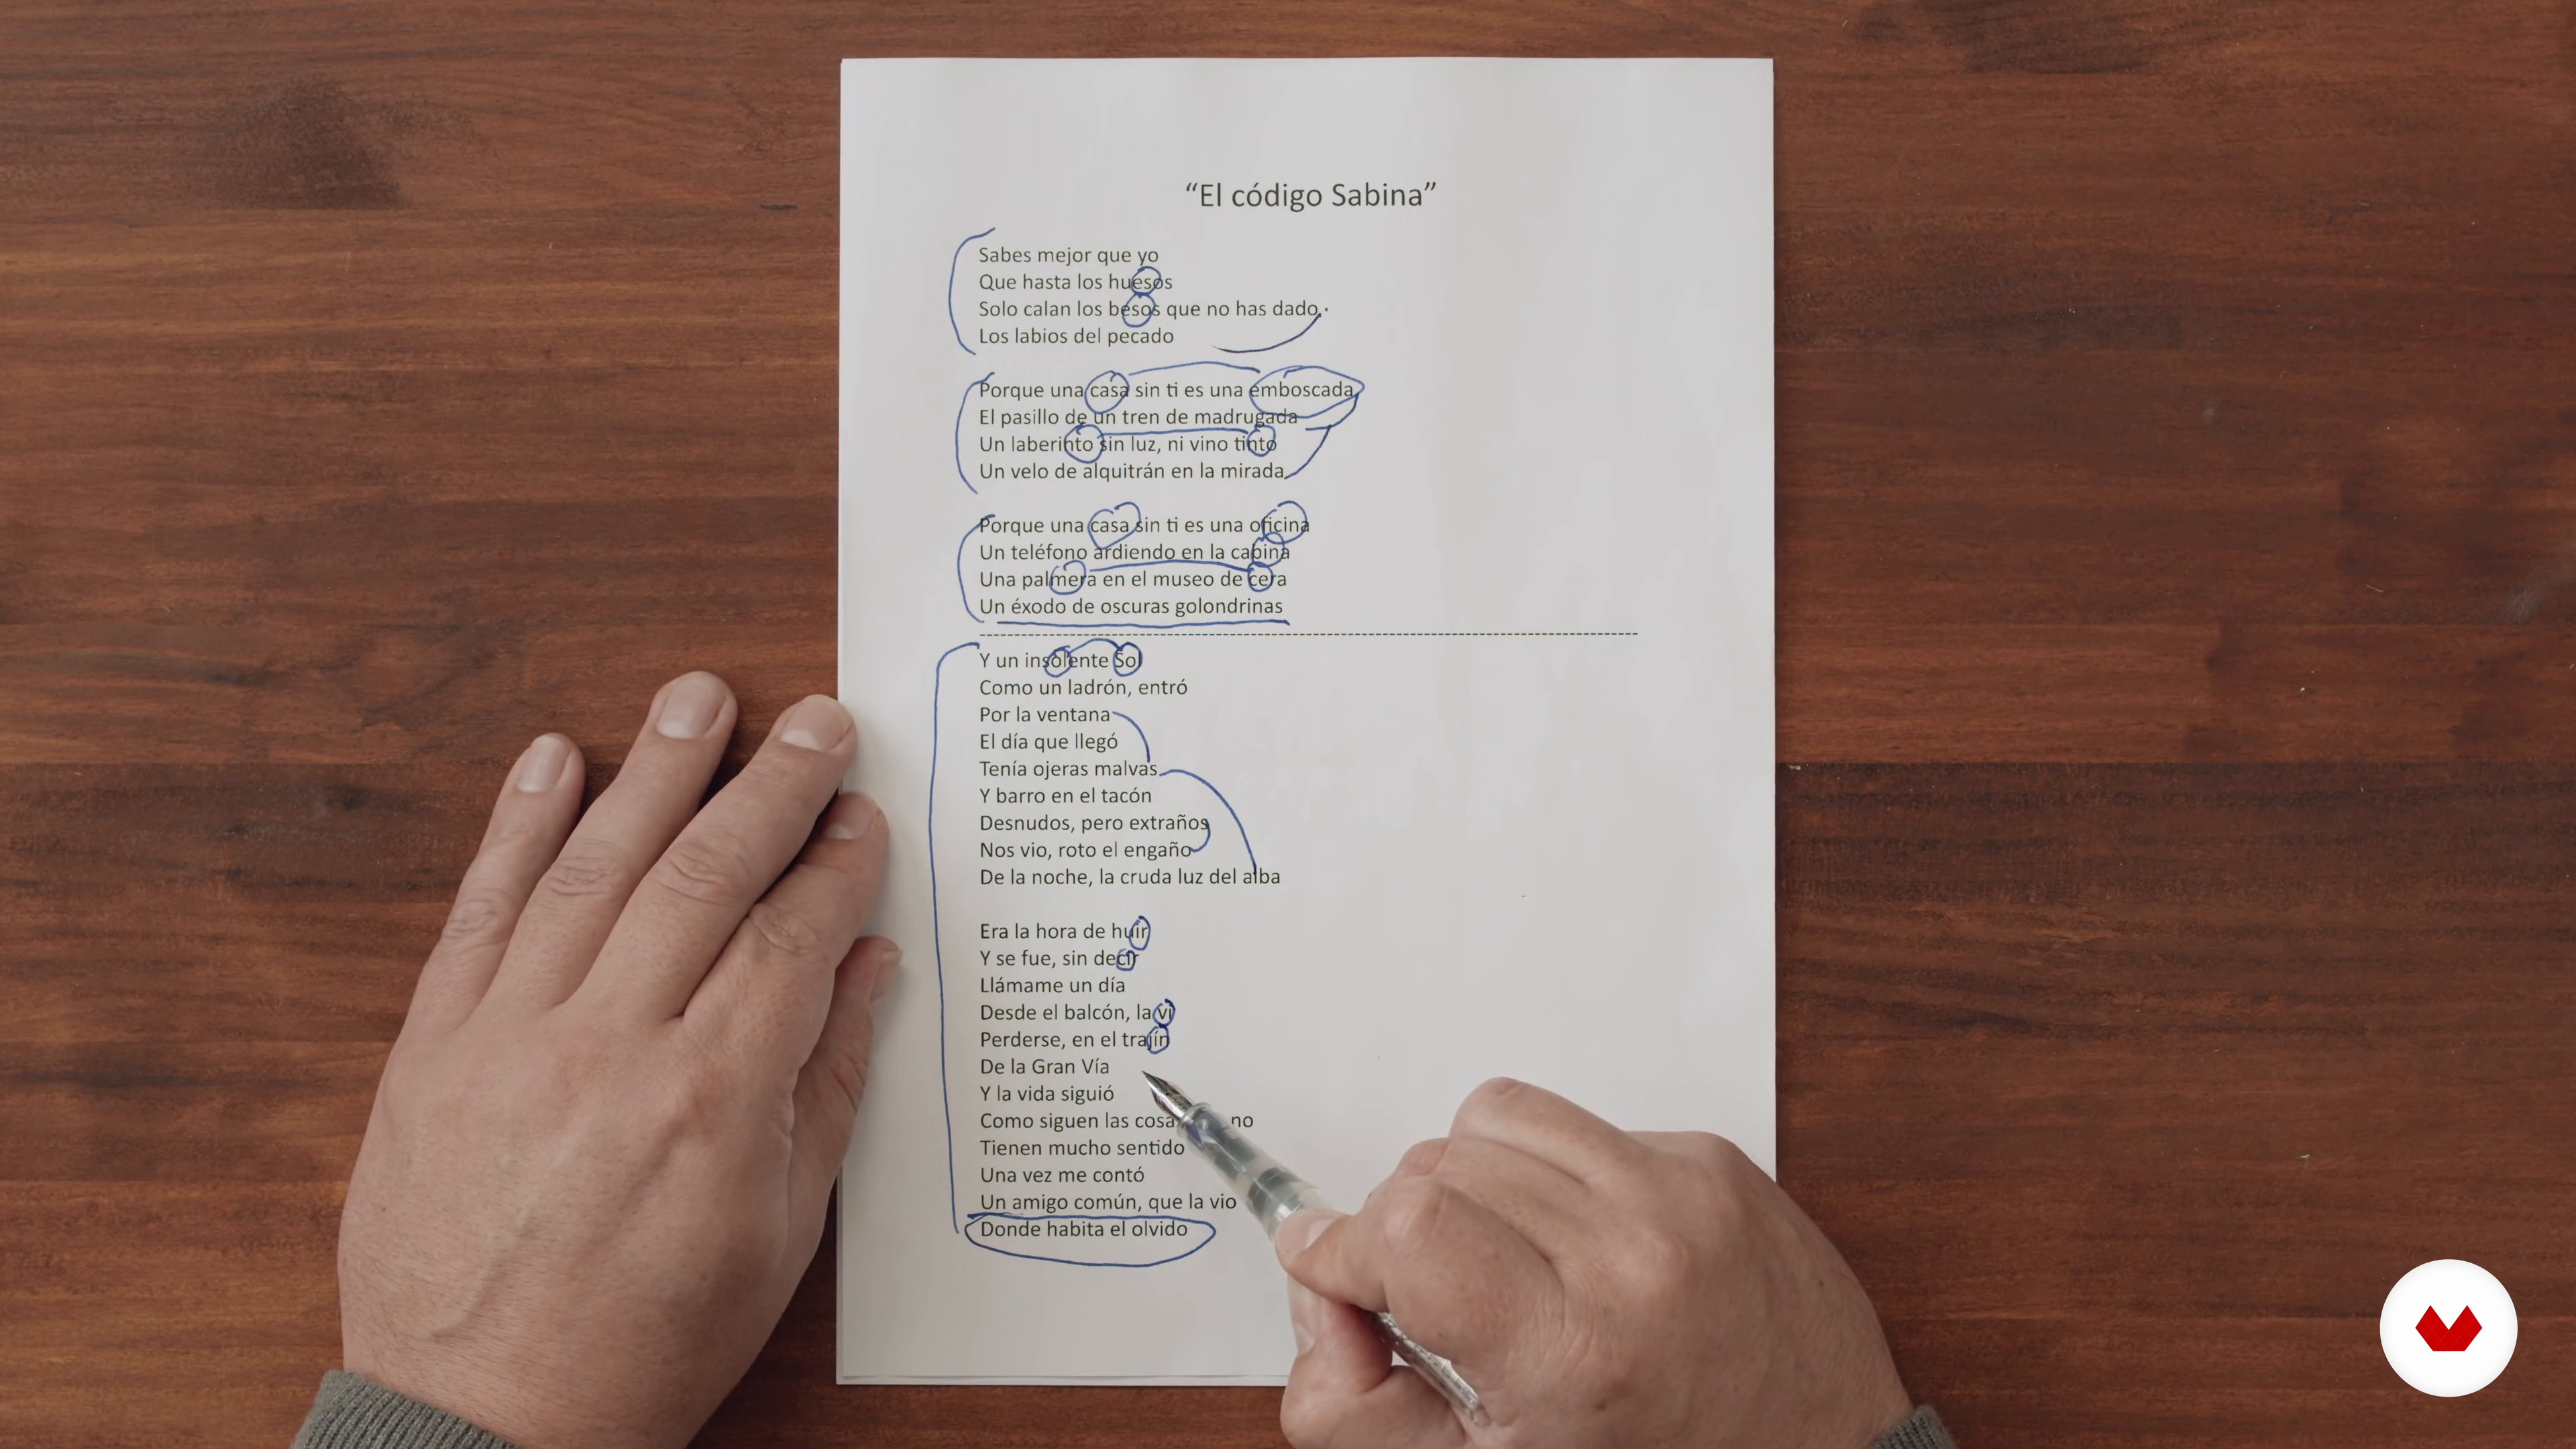 “El código Sabina”
Sabes mejor que yo
Que hasta los huesos
Solo calan los besos que no has dado
Los labios del pecado
Porque una casa sin ti es una emboscada
El pasillo de un tren de madrugada
Un laberinto sin luz, ni vino tinto
Un velo de alquitrán en la mirada
Porque una casa sin ti es una oficina
Un teléfono ardiendo en la cabina
Una palmera en el museo de cera
Un éxodo de oscuras golondrinas
Y un insolente Sol
Como un ladrón, entró
Por la ventana
El día que llegó
Tenía ojeras malvas
Y barro en el tacón
Desnudos, pero extraños
Nos vio, roto el engaño
De la noche, la cruda luz del alba
Era la hora de huir
Y se fue, sin decir
Llámame un día
Desde el balcón, la vi
Perderse, en el trajín
De la Gran Vía
Y la vida siguió
Como siguen las no
Tienen mucho sentido
Una vez me contó
Un amigo común, que la vio
Donde habita el olvido